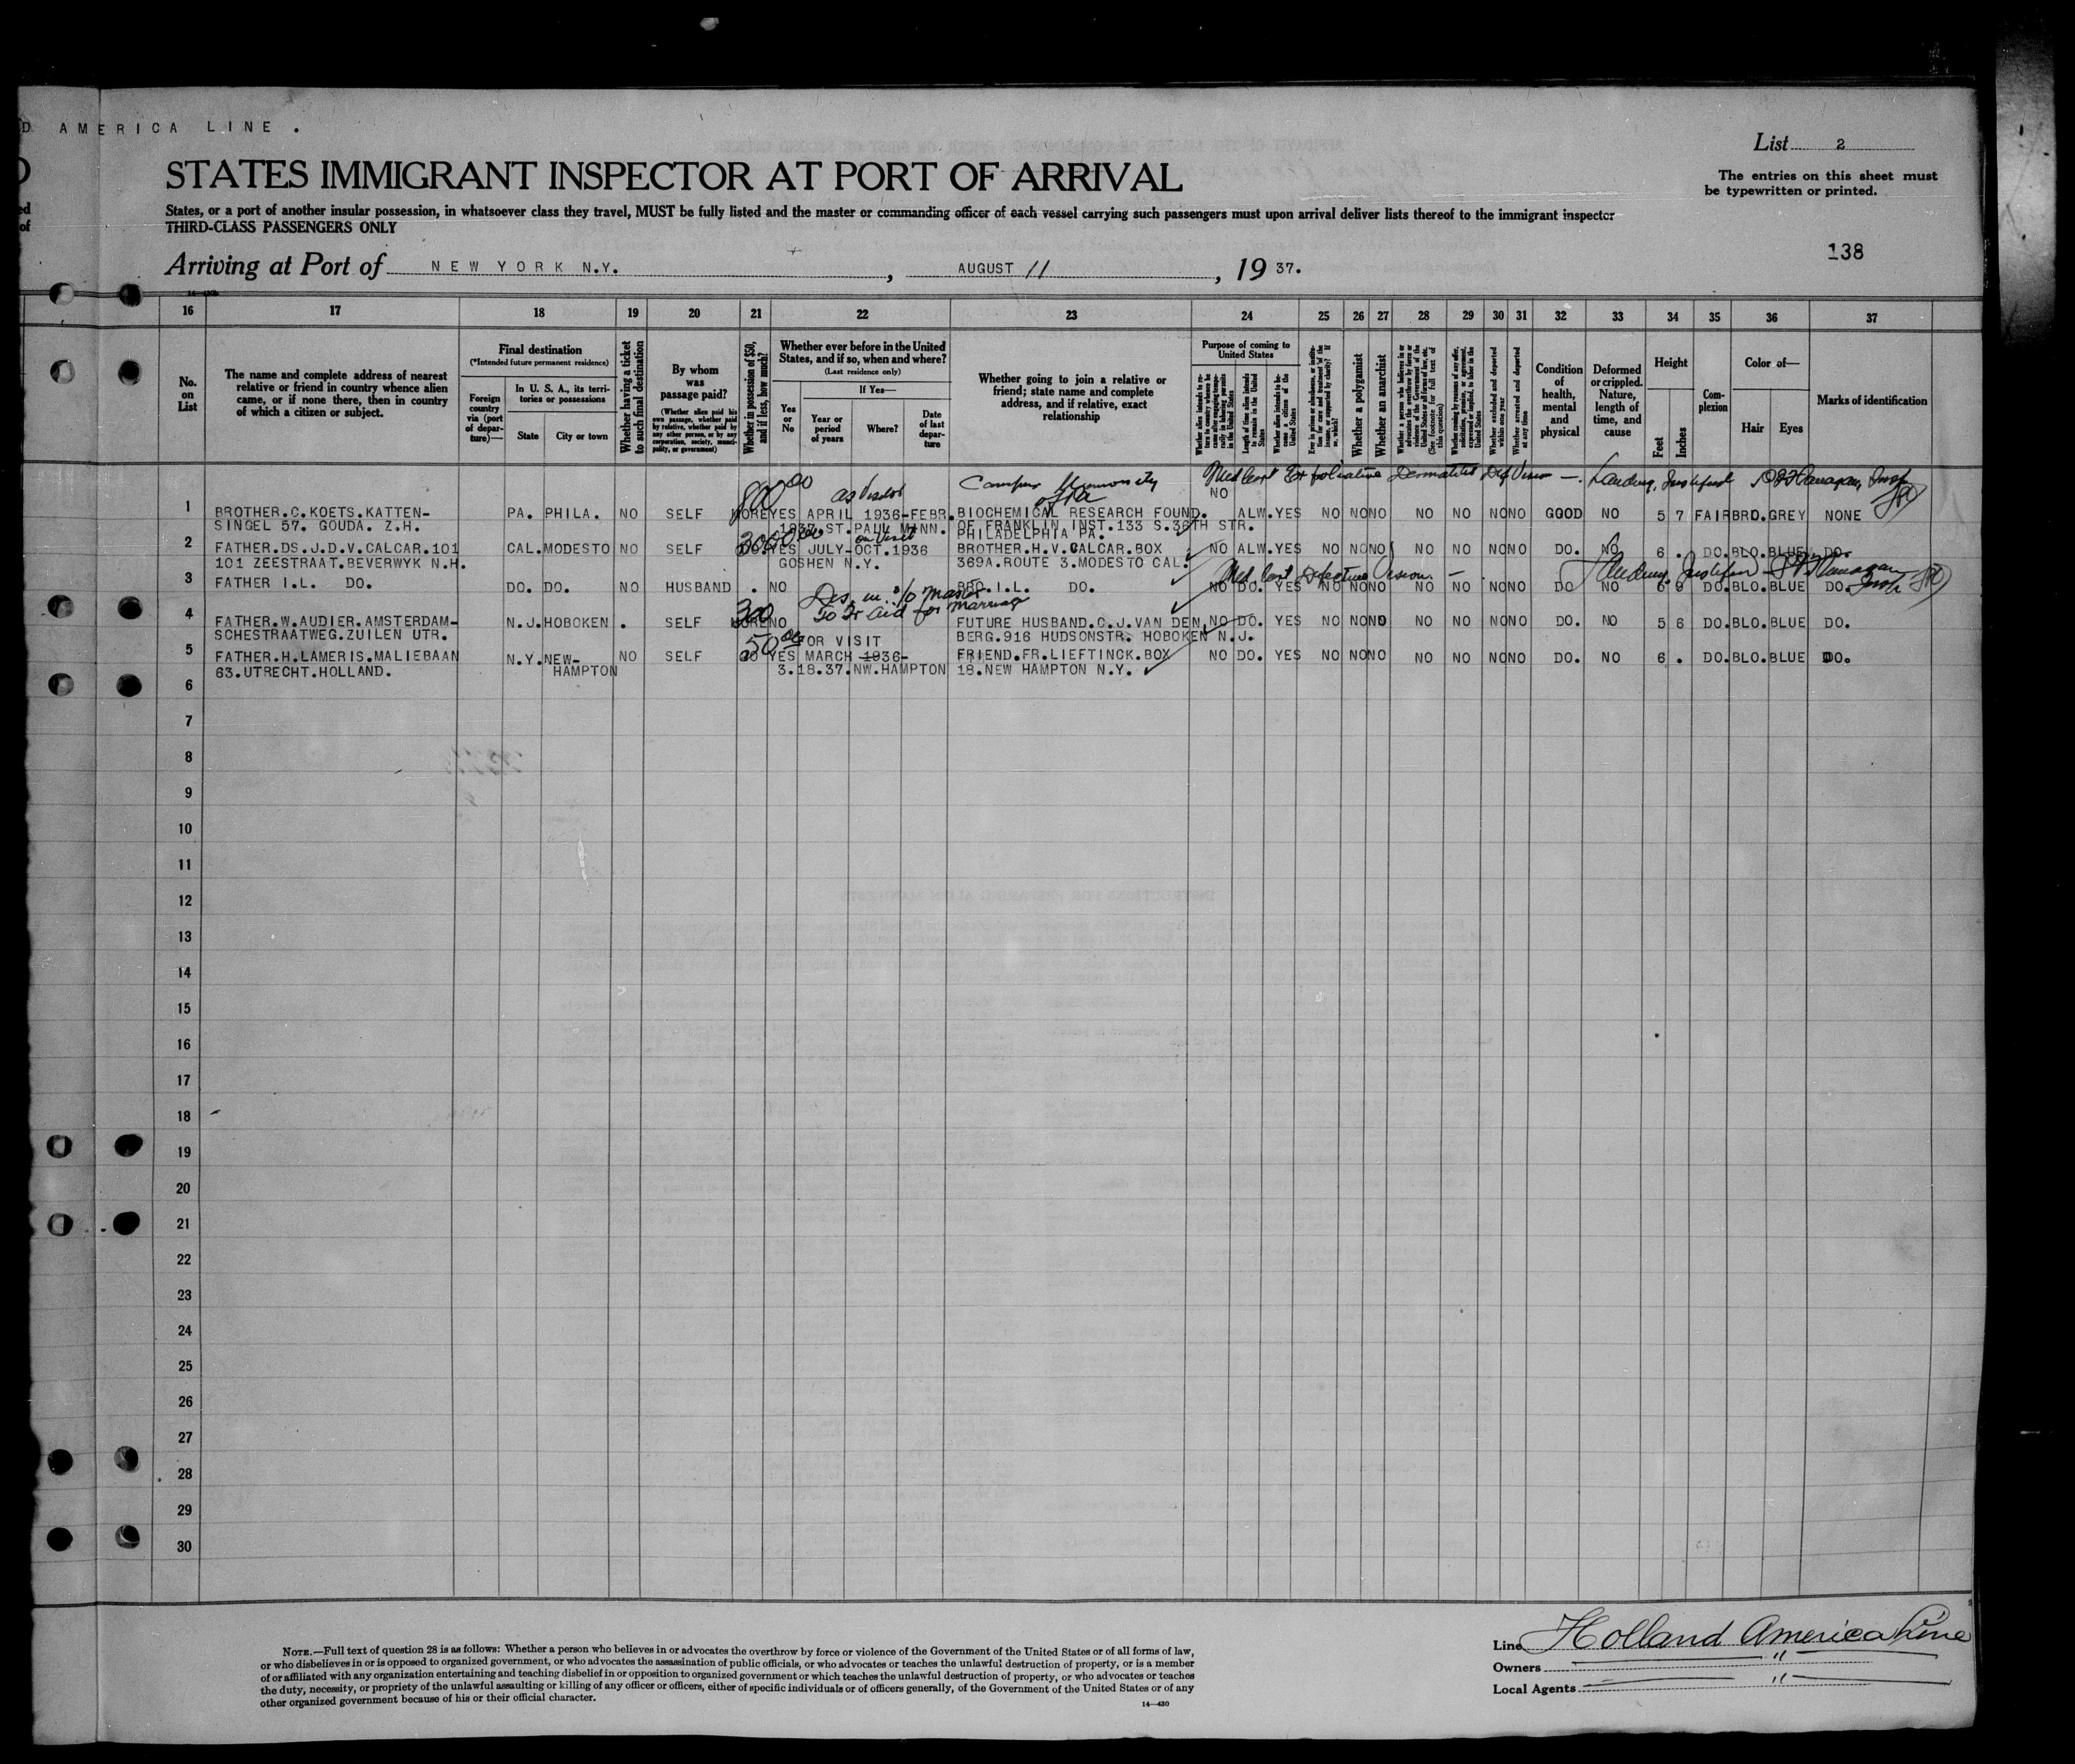 D AMERICA LINE .
List 2
STATES IMMIGRANT INSPECTOR AT PORT OF ARRIVAL
The entries on this sheet must
be typewritten or printed.
States, or a port of another insular possession, in whatsoever class they travel, MUST be fully listed and the master or commanding officer of each vessel carrying such passengers must upon arrival deliver lists thereof to the immigrant inspector
THIRD-CLASS PASSENGERS ONLY
138
Arriving at Port of NEW YORK N.Y. , AUGUST 11 , 19 37.
16 17 18 19 20 21 22 23 24 25 26 27 28 29 30 31 32 33 34 35 36 37
No. on List
The name and complete address of nearest relative or friend in country whence alien came, or if none there, then in country of which a citizen or subject.
Final destination
(*Intended future permanent residence)
Foreign country via (port of departure)—
In U. S. A., its territories or possessions
State
City or town
Whether having a ticket to such final destination
By whom was passage paid?
(Whether alien paid his own passage, whether paid by relative, whether paid by any other person, or by any corporation, society, municipality, or government)
Whether in possession of $50, and if less, how much?
Whether ever before in the United States, and if so, when and where?
(Last residence only)
Yes or No
If Yes—
Year or period of years
Where?
Date of last departure
Whether going to join a relative or friend; state name and complete address, and if relative, exact relationship
Purpose of coming to United States
Length of time alien intends to remain in the United States
Whether alien intends to become a citizen of the United States
Whether a polygamist
Whether an anarchist
Whether excluded and deported within one year
Whether arrested and deported at any time
Condition of health, mental and physical
Deformed or crippled. Nature, length of time, and cause
Height
Feet
Inches
Complexion
Color of—
Hair
Eyes
Marks of identification
800 00 as Visitor Med cert Exfoliative Dermatitis Def Vision — Landing Justified
1 BROTHER.C.KOETS.KATTEN- PA. PHILA. NO SELF MORE YES APRIL 1936-FEBR. BIOCHEMICAL RESEARCH FOUND. NO ALW. YES NO NO NO NO NO NO NO GGOOD NO 5 7 FAIR BRO. GREY NONE
SINGEL 57. GOUDA. Z.H. 1937 ST.PAUL MINN. OF FRANKLIN INST.133 S.36TH STR.
PHILADELPHIA PA.
3000 on Visit
2 FATHER.DS.J.D.V.CALCAR.101 CAL. MODESTO NO SELF DO. YES JULY-OCT.1936 BROTHER.H.V.CALCAR.BOX NO ALW. YES NO NO NO NO NO NO NO DO. NO 6 . DO. BLO. BLUE DO.
101 ZEESTRAAT.BEVERWYK N.H. GOSHEN N.Y. 369A.ROUTE 3.MODESTO CAL.
Med cert Defective Vision —
3 FATHER I.L. DO. DO. DO. NO HUSBAND . NO BRO.I.L. DO. NO DO. YES NO NO NO NO NO NO NO DO NO 6 9 DO. BLO. BLUE DO.
300 To Fr Aid for marriage
4 FATHER.W.AUDIER.AMSTERDAM- N.J. HOBOKEN . SELF MORE NO FUTURE HUSBAND.C.J.VAN DEN NO DO. YES NO NO NO NO NO NO NO DO. NO 5 6 DO. BLO. BLUE DO.
SCHESTRAATWEG.ZUILEN UTR. BERG.916 HUDSONSTR. HOBOKEN N.J.
50 00 FOR VISIT
5 FATHER.H.LAMERIS.MALIEBAAN N.Y. NEW- NO SELF YES MARCH 1936- FRIEND.FR.LIEFTINCK.BOX NO DO. YES NO NO NO NO NO NO NO DO. NO 6 . DO. BLO. BLUE DO.
63.UTRECHT.HOLLAND. HAMPTON 3.18.37.NW.HAMPTON 18.NEW HAMPTON N.Y.
6
7
8
9
10
11
12
13
14
15
16
17
18
19
20
21
22
23
24
25
26
27
28
29
30
NOTE.—Full text of question 28 is as follows: Whether a person who believes in or advocates the overthrow by force or violence of the Government of the United States or of all forms of law,
or who disbelieves in or is opposed to organized government, or who advocates the assassination of public officials, or who advocates or teaches the unlawful destruction of property, or is a member
of or affiliated with any organization entertaining and teaching disbelief in or opposition to organized government or which teaches the unlawful destruction of property, or who advocates or teaches
the duty, necessity, or propriety of the unlawful assaulting or killing of any officer or officers, either of specific individuals or of officers generally, of the Government of the United States or of any
other organized government because of his or their official character.
14—430
Line Holland America Line
Owners "
Local Agents "